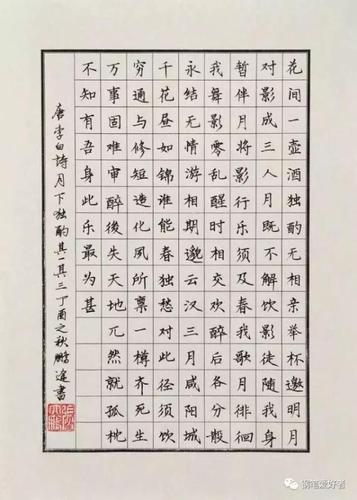 花间一壶酒独酌无相亲举杯邀明月
对影成三人月既不解饮影徒随我身
暂伴月将影行乐须及春我歌月徘徊
我舞影零乱醒时相交欢醉后各分散
永结无情游相期邈云汉三月咸阳城
千花昼如锦谁能春独愁对此径须饮
穷通与修短造化夙所禀一樽齐死生
万事固难审醉後失天地兀然就孤枕
不知有吾身此乐最为甚
唐李白詩月下独酌其一其三丁酉之秋鹏遥書
钢笔爱好者